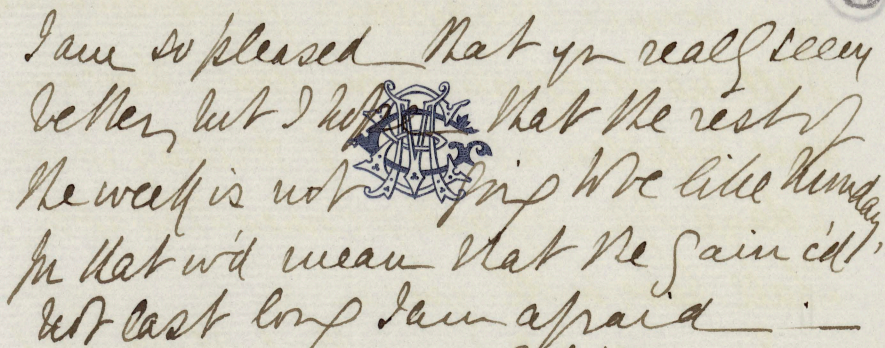 I am so pleased that yr really seem
better, but I hope that the rest of
the week is not going to be like Thursday,
for that w'd mean that the gain c'd
not last long I am afraid —